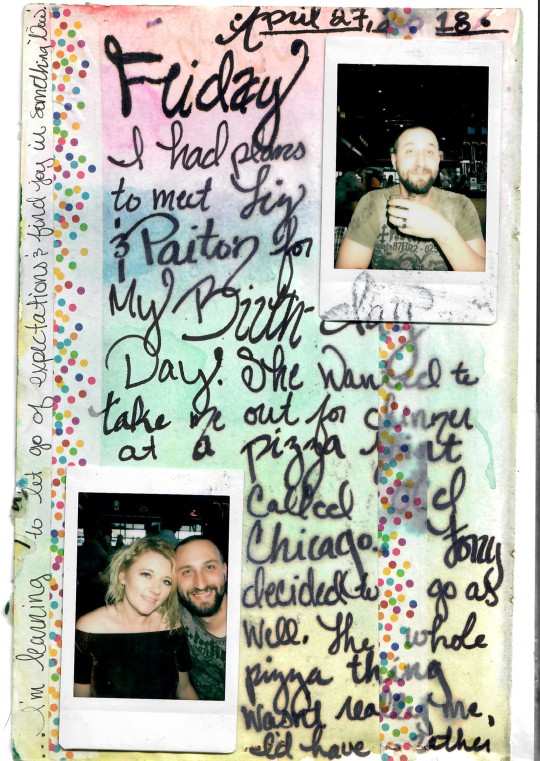 April 27, 2018.
Friday
I had plans
to meet Liz
& Paiton for
My Birth day
Day. She wanted to
take me out for dinner
at a pizza
Called
Chicago. Tony
decided to go as
well. The whole
pizza thing
wasn't really me,
I'd have rather
I'm learning to let go of expectations & find joy in something New!